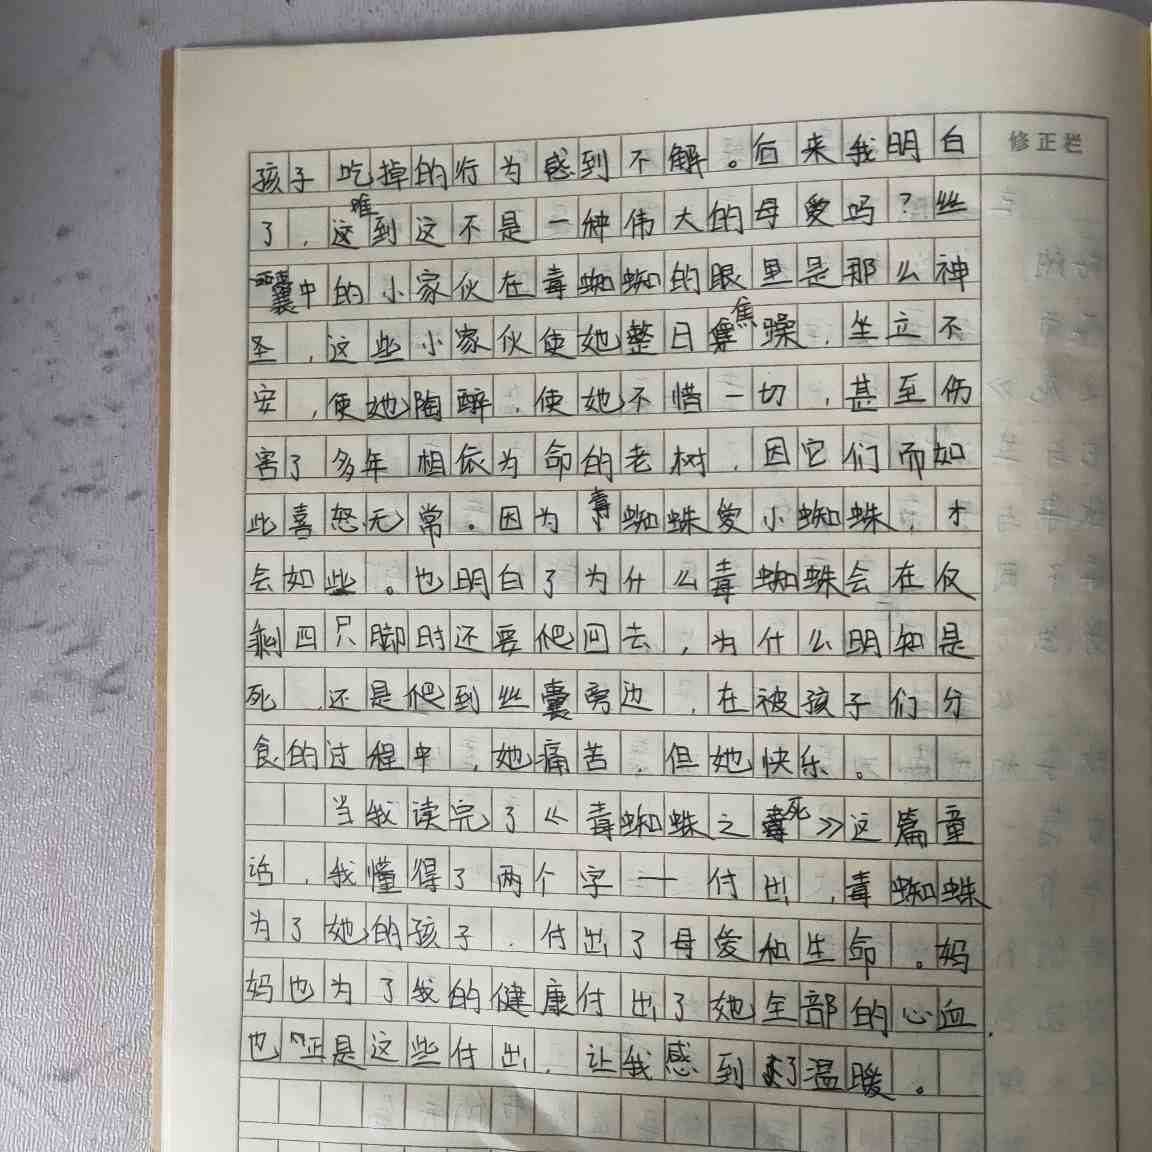 修正栏
孩子吃掉的行为感到不解。后来我明白
了，难到这不是一种伟大的母爱吗？丝
囊中的小家伙在毒蜘蜘的眼里是那么神
圣，这些小家伙使她整日焦躁，坐立不
安，使她陶醉，使她不惜一切，甚至伤
害了多年相依为命的老树，因它们而如
此喜怒无常。因为毒蜘蛛爱小蜘蛛，才
会如些。也明白了为什么毒蜘蛛会在仅
剩四只脚时还要爬回去，为什么明知是
死，还是爬到丝囊旁边，在被孩子们分
食的过程中，她痛苦，但她快乐。
当我读完了《毒蜘蛛之死》这篇童
话，我懂得了两个字一付出，毒蜘蛛
为了她的孩子，付出了母爱和生命。妈
妈也为了我的健康付出了她全部的心血，
也正是这些付出，让我感到了温暖。